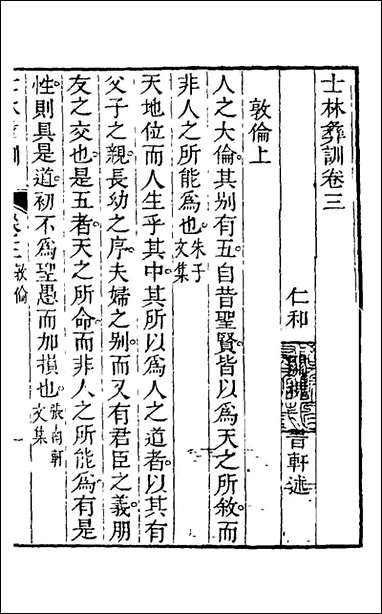 士林彝訓卷三
仁和 晉軒述
敦倫上
人之大倫其别有五自昔聖賢皆以爲天之所敘而
非人之所能爲也朱子文集
天地位而人生乎其中其所以爲人之道者以其有
父子之親長幼之序夫婦之别而又有君臣之義朋
友之交也是五者天之所命而非人之所能爲有是
性則具是道初不爲聖愚而加損也張南軒文集
士林彝訓 卷三 敦倫 一